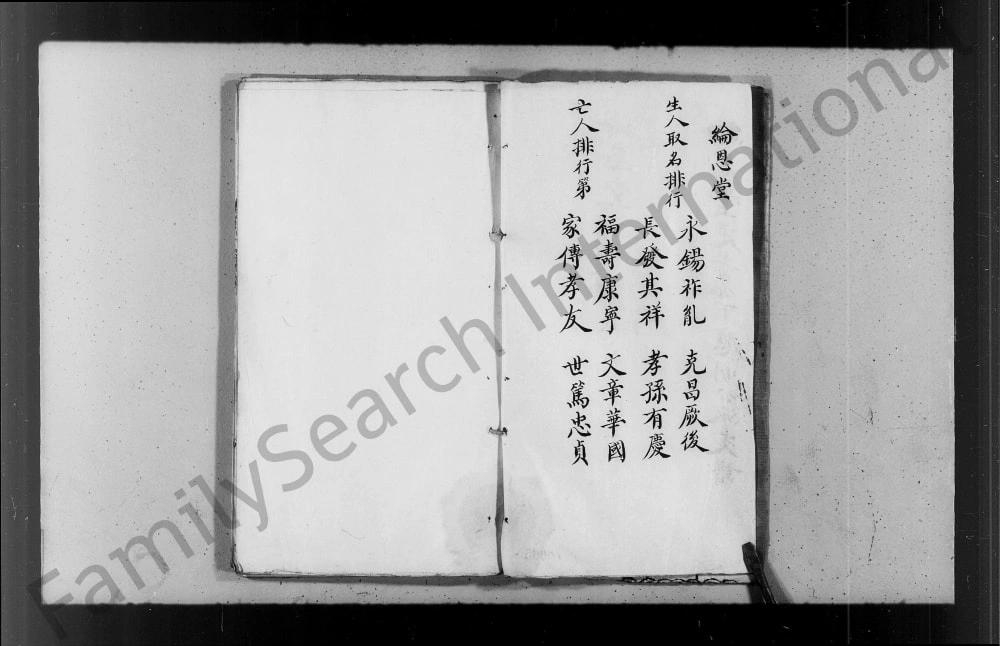 綸恩堂
生人取名排行
永錫祚胤 克昌厥後
長發其祥 孝孫有慶
亡人排行第
福壽康寧 文章華國
家傳孝友 世篤忠貞
FamilySearch International